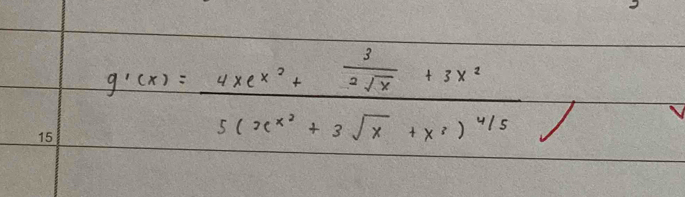 g'(x) = (4xe^(x²) + 3/(2√x) + 3x²) / (5(2e^(x²) + 3√x + x³)^(4/5))
15